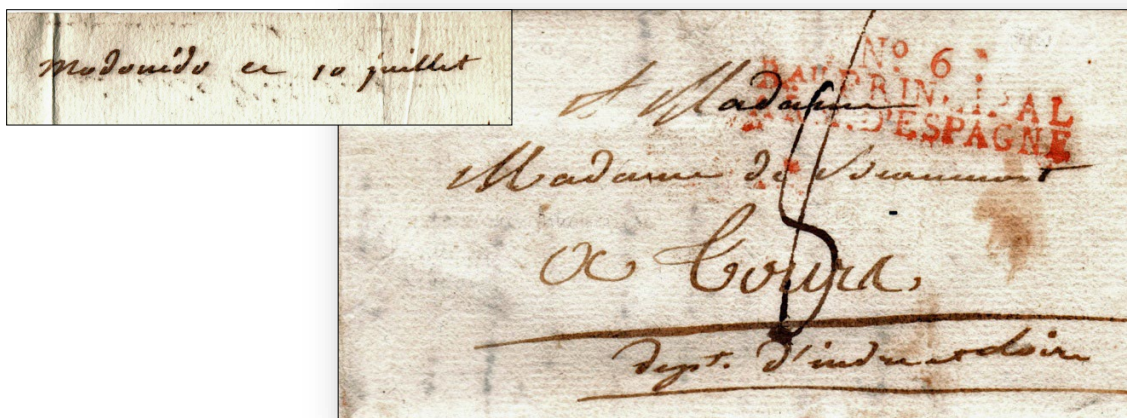 Modonédo ce 10 juillet
No 6
Bau PRINCIPAL
ARM. D'ESPAGNE
A Madame
Madame de Beaumont
a Tours,
dept. d'indre et Loire